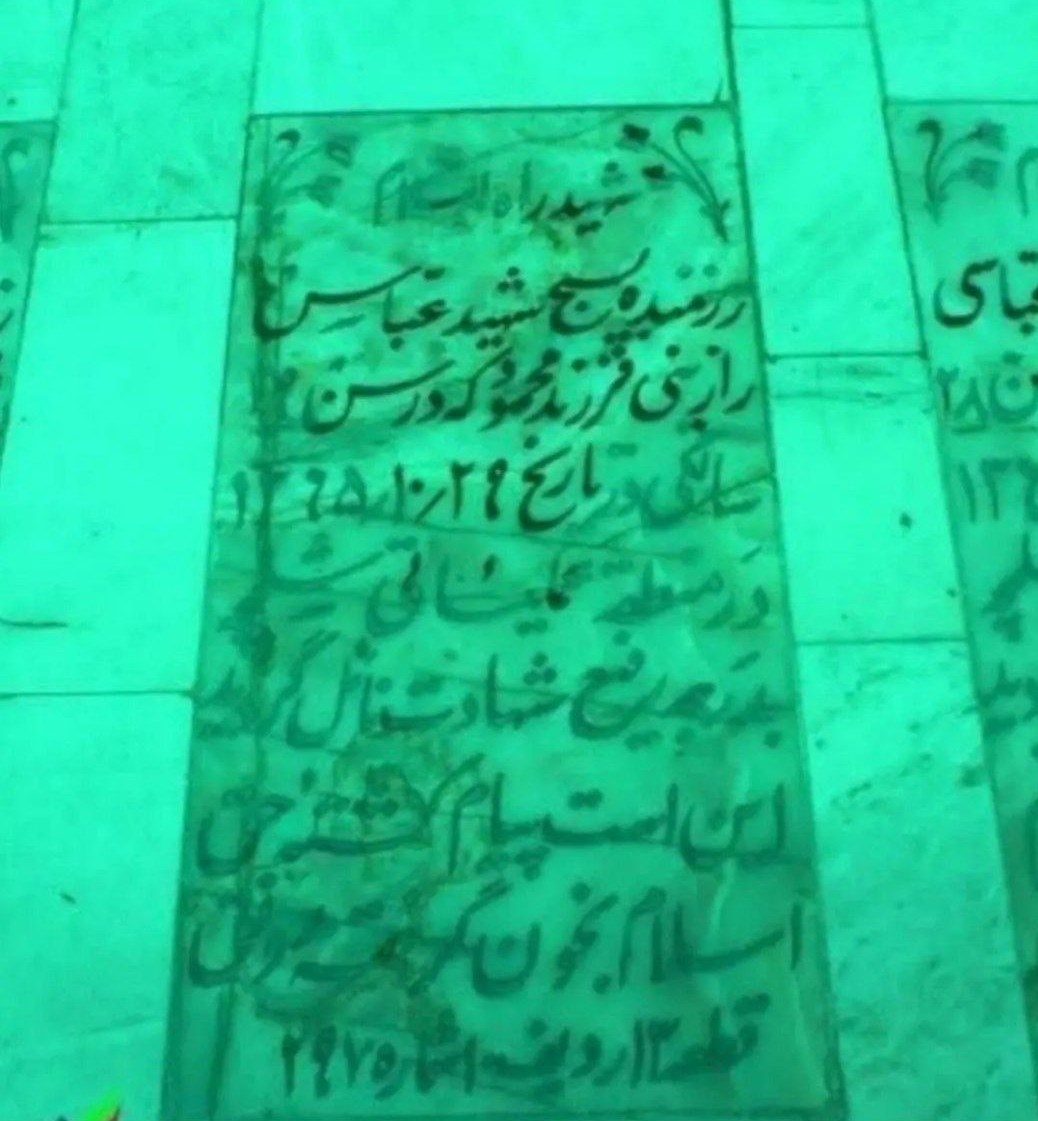 شهید راه اسلام
رزمنده بسیج شهید عباس
رازبنی فرزند محمود که در سن
سالگی در تاریخ ۲۹/۱۰/۱۳۶۵
در منطقه عملیاتی شلمچه
بدرجه رفیع شهادت نائل گردید
این است پیام کشته حق
اسلام بخون گرفته رونق
قطعه ردیف شماره
عباسی